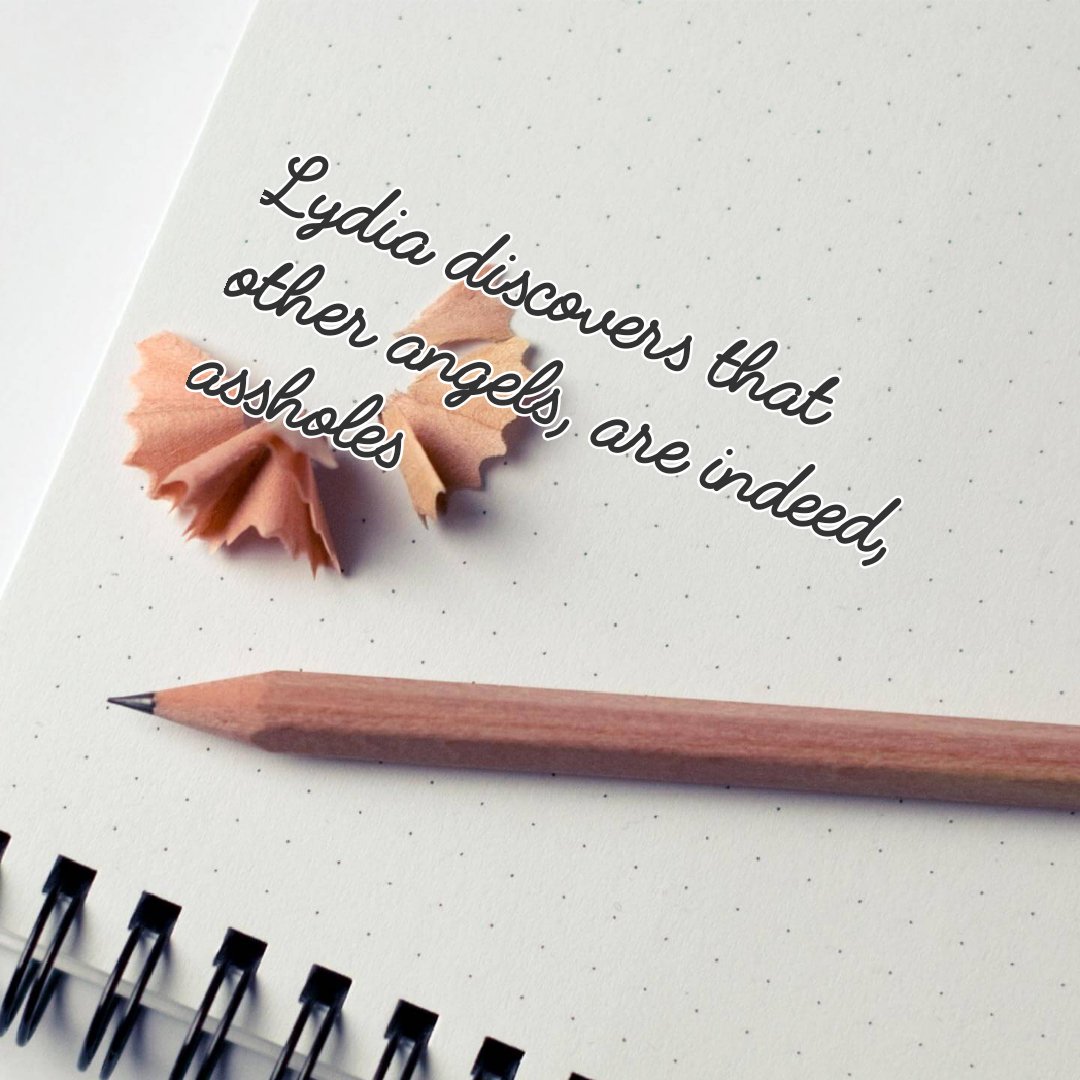 Lydia discovers that
other angels, are indeed,
assholes